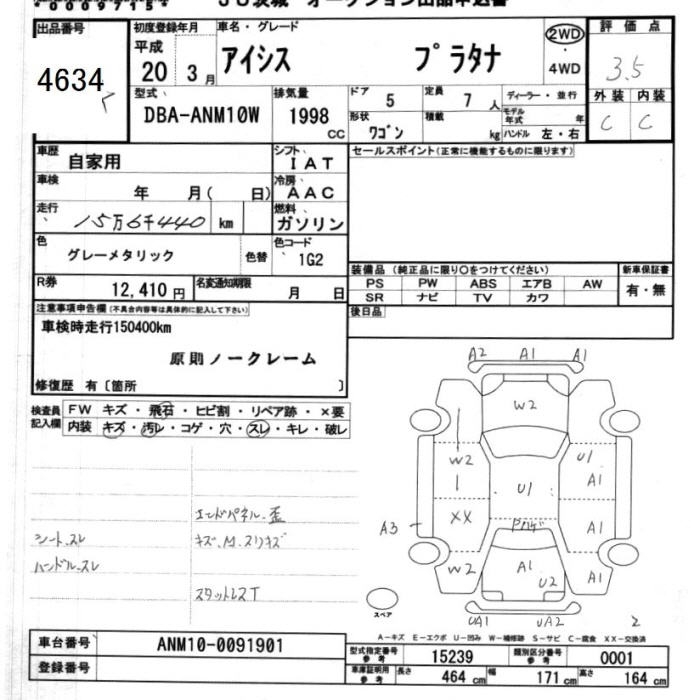 出品番号
4634
初度登録年月
平成
20 3月
車名・グレード
アイシス プラタナ
2WD
・
4WD
評価点
3.5
外装 内装
C C
型式
DBA-ANM10W
排気量
1998
cc
ドア 5
定員 7 人
ディーラー・並行
モデル
年式 年
形状
ワゴン
積載 kg
ハンドル 左・右
車歴
自家用
シフト
IAT
セールスポイント(正常に機能するものに限ります)
車検
年 月( 日)
冷房
AAC
走行
15万6千440 km
燃料
ガソリン
色
グレーメタリック
色替
色コード
1G2
R券
12,410 円
名変通知期限
月 日
装備品(純正品に限り○をつけてください)
PS PW ABS エアB AW
SR ナビ TV カワ
新車保証書
有・無
後日品
注意事項申告欄(不具合内容等は具体的に記入して下さい)
車検時走行150400km
原則ノークレーム
修復歴 有〔箇所 〕
検査員
記入欄
FW キズ・飛石・ヒビ割・リペア跡・×要
内装 キズ・汚レ・コゲ・穴・スレ・キレ・破レ
エンドパネル歪
シート、スレ
キズ、M、スリキズ
ハンドル、スレ
スタットレスT
A2 A1 A1
W2
W2
U1
U1
A1
XX
A3
A1
W2
A1
U2
A1
UA1 UA2
2
スペア
A-キズ E-エクボ U-凹み W-補修跡 S-サビ C-腐食 XX-交換済
車台番号
ANM10-0091901
登録番号
型式指定番号
参考
15239
類別区分番号
参考
0001
車庫証明用
参考
長さ 464 cm
幅 171 cm
高さ 164 cm